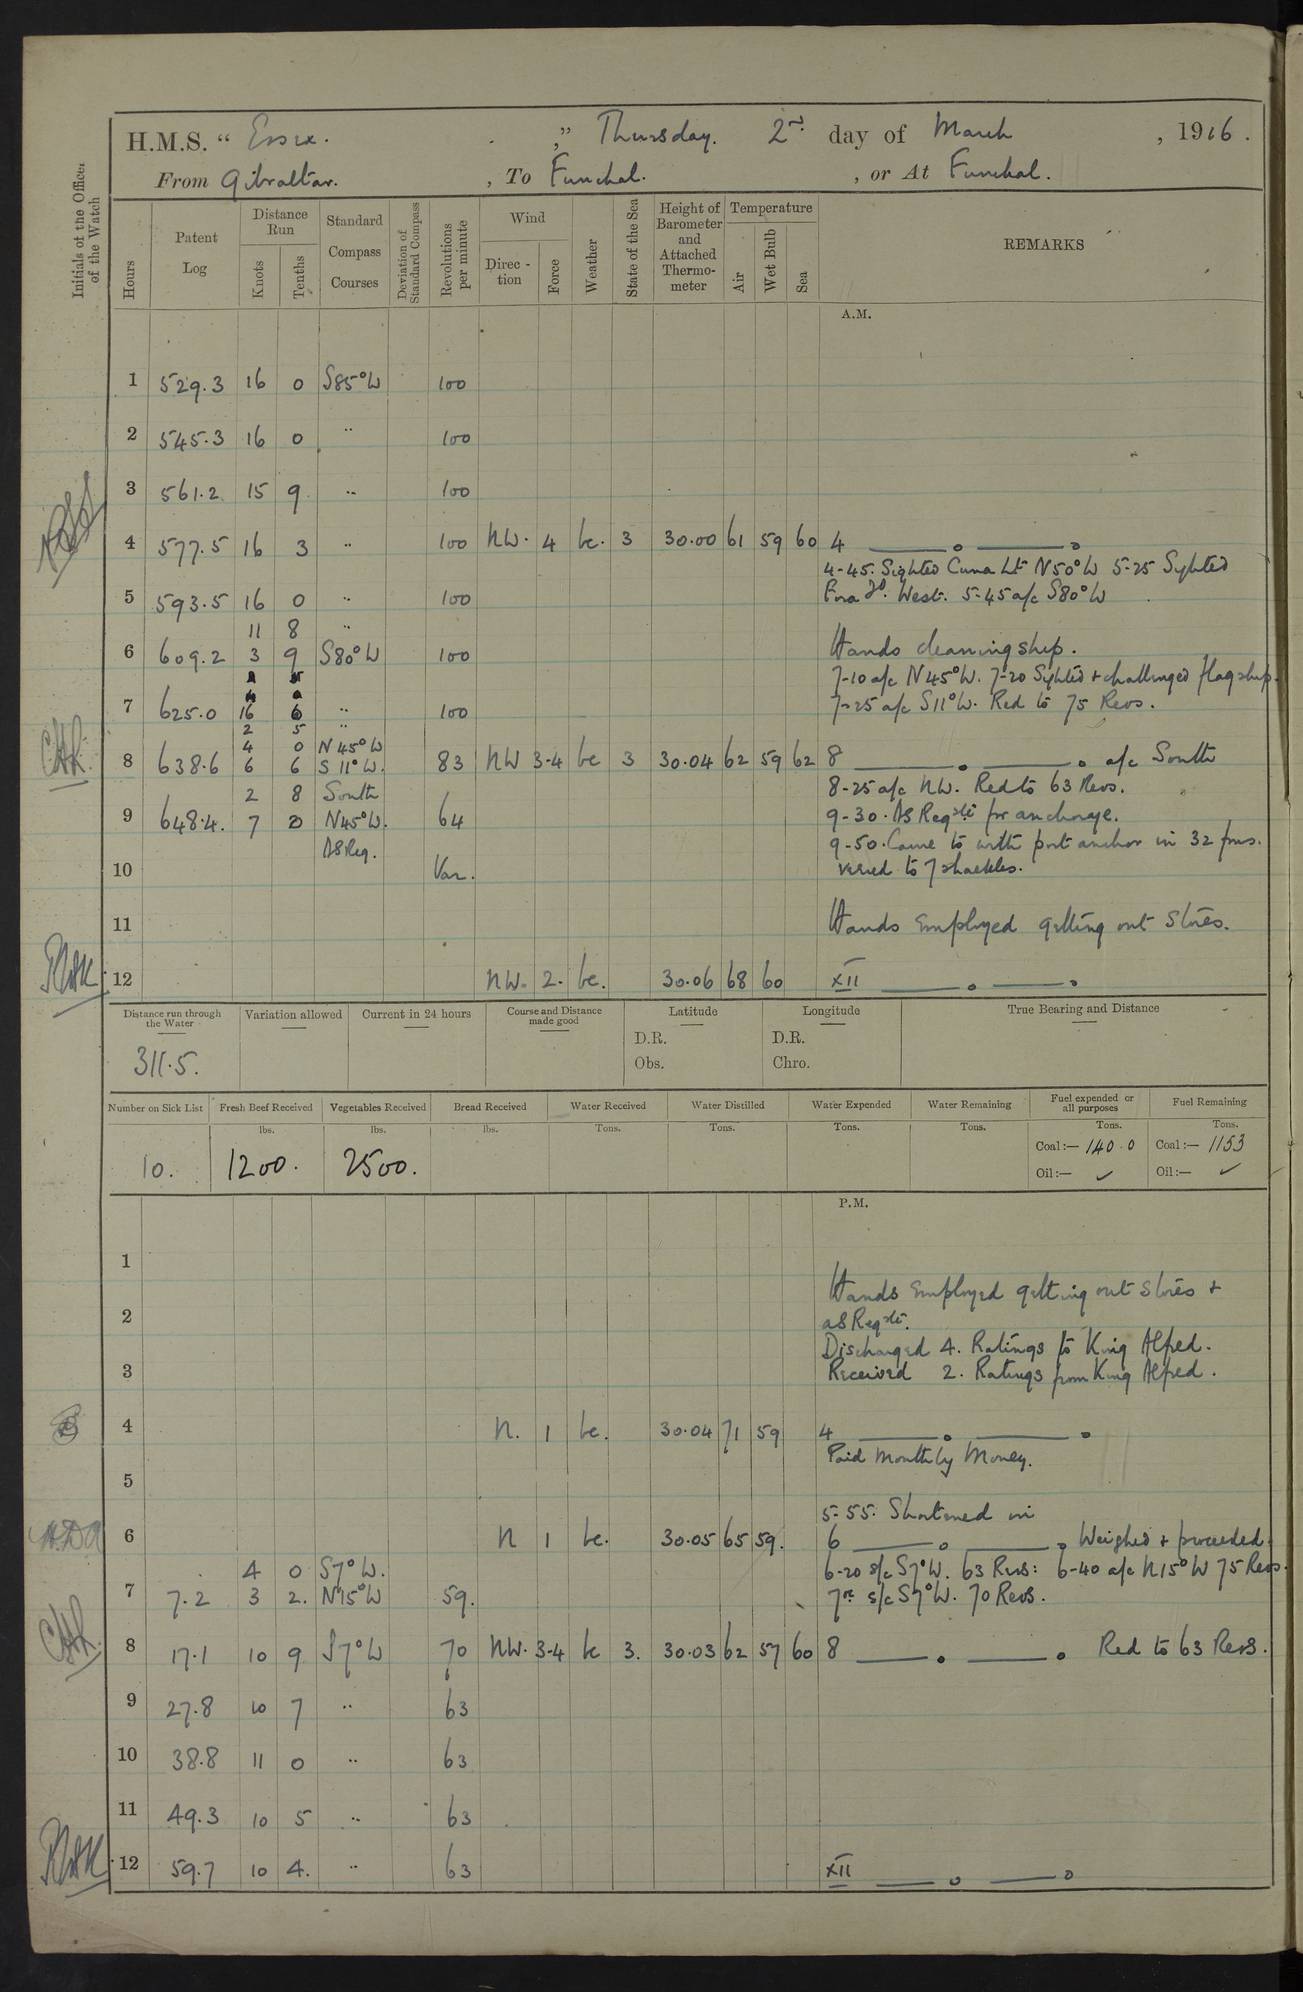 H.M.S. " Essex. " Thursday. 2nd day of March, 1916.
From Gibraltar. , To Funchal. , or At Funchal.
Initials of the Officer of the Watch
Hours
Patent Log
Distance Run
Knots
Tenths
Standard Compass Courses
Deviation of Standard Compass
Revolutions per minute
Wind
Direction
Force
Weather
State of the Sea
Height of Barometer and Attached Thermometer
Temperature
Air
Wet Bulb
Sea
REMARKS
A.M.
1 529.3 16 0 S85°W 100
2 545.3 16 0 " 100
3 561.2 15 9 " 100
4 577.5 16 3 " 100 NW. 4 bc. 3 30.00 61 59 60 4
4-45. Sighted Cima Lt N50°W 5-25 Sighted
5 593.5 16 0 " 100 Fora Do. West. 5-45 a/c S80°W
11 8 "
6 609.2 3 9 S80°W 100 Hands cleaning ship.
7-10 a/c N45°W. 7-20 Sighted + challenged flagship.
7 625.0 16 6 " 100 7-25 a/c S11°W. Red to 75 Revs.
2 5 "
4 0 N45°W
8 638.6 6 6 S11°W. 83 NW 3-4 bc 3 30.04 62 59 62 8 a/c South
2 8 South 8-25 a/c NW. Red to 63 Revs.
9 648.4. 7 0 N45°W. 64 9-30. As Reqte for anchorage.
As Req. 9-50. Came to with port anchor in 32 fms.
10 Var. veered to 7 shackles.
11 Hands employed getting out Stores.
12 NW. 2. bc. 30.06 68 60 XII
Distance run through the Water
Variation allowed
Current in 24 hours
Course and Distance made good
Latitude
Longitude
True Bearing and Distance
D.R. D.R.
Obs. Chro.
311.5.
Number on Sick List
Fresh Beef Received
Vegetables Received
Bread Received
Water Received
Water Distilled
Water Expended
Water Remaining
Fuel expended or all purposes
Fuel Remaining
lbs. lbs. lbs. Tons. Tons. Tons. Tons. Tons. Tons.
10. 1200. 2500. Coal:— 140.0 Coal:— 1153
Oil:— ✓ Oil:— ✓
P.M.
1
Hands employed getting out stores +
2 as Reqte.
Discharged 4. Ratings to King Alfred.
3 Received 2. Ratings from King Alfred.
4 N. 1 bc. 30.04 71 59 4
Paid Monthly Money.
5
5-55. Shortened in
6 N 1 bc. 30.05 65 59. 6 Weighed + proceeded.
4 0 S7°W. 6-20 s/c S7°W. 63 Revs: 6-40 a/c N15°W 75 Revs.
7 7.2 3 2. N15°W 59. 7 s/c S7°W. 70 Revs.
8 17.1 10 9 S7°W 70 NW. 3-4 bc 3. 30.03 62 57 60 8 Red to 63 Revs.
9 27.8 10 7 " 63
10 38.8 11 0 " 63
11 49.3 10 5 " 63
12 59.7 10 4. " 63 XII